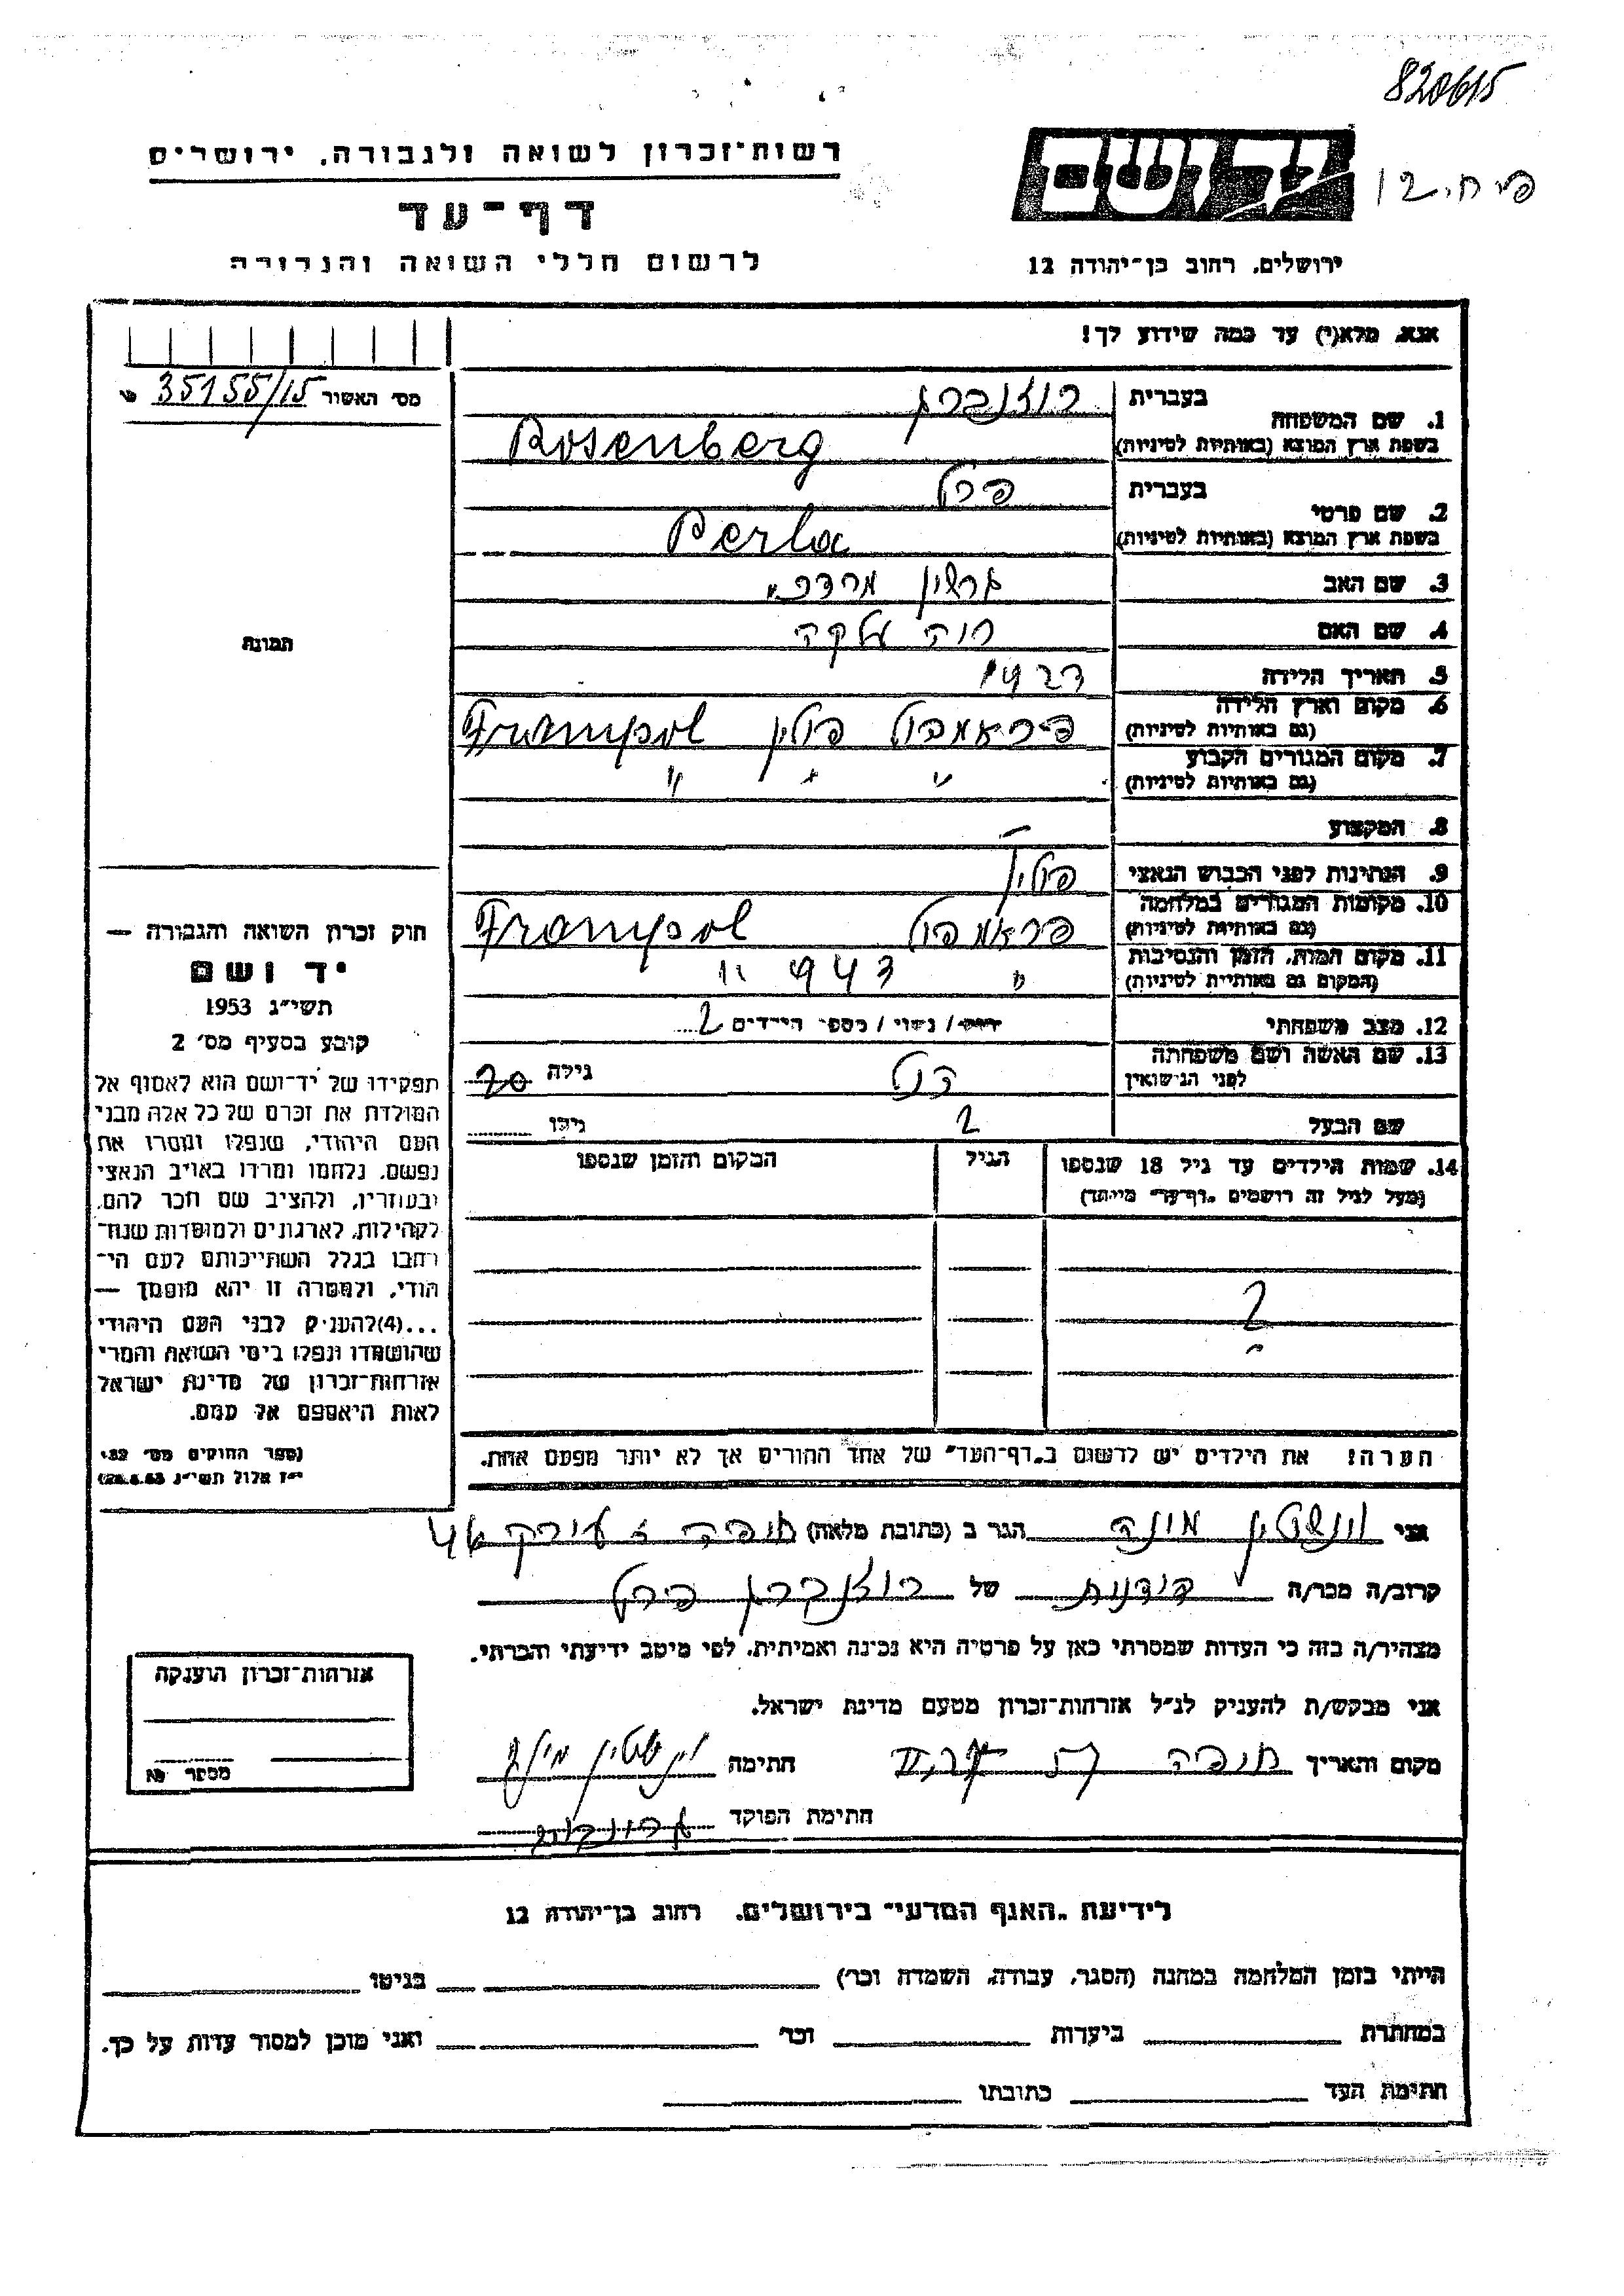 820615
רשות־זכרון לשואה ולגבורה, ירושלים
יד ושם
דף־עד
לרשום חללי השואה והגבורה
ירושלים, רחוב בן־יהודה 12
אנא, מלא(י) עד כמה שידוע לך!
מס׳ האשור 35155/15
בעברית רוזנברג
1. שם המשפחה
בשפת ארץ המוצא (באותיות לטיניות) Rosenberg
בעברית פרל
2. שם פרטי
בשפת ארץ המוצא (באותיות לטיניות) Perla
3. שם האב גרשון מרדכי
4. שם האם
5. תאריך הלידה 1923
6. מקום וארץ הלידה
(גם באותיות לטיניות) פראמפול פולין Frampol
7. מקום המגורים הקבוע
(גם באותיות לטיניות) " " " "
8. המקצוע —
9. הנתינות לפני הכבוש הנאצי פולין
10. מקומות המגורים במלחמה
(גם באותיות לטיניות) פראמפול Frampol
11. מקום המות, הזמן והנסיבות
(המקום גם באותיות לטיניות) " 1943 "
12. מצב משפחתי רווק / נשוי / מספר הילדים 2
13. שם האשה ושם משפחתה
לפני הנישואין גילה 20
שם הבעל ? גילו
14. שמות הילדים עד גיל 18 שנספו
(מעל לגיל זה רושמים „דף־עד״ מיוחד)
הגיל
המקום והזמן שנספו
?
הערה! את הילדים יש לרשום ב„דף־העד״ של אחד ההורים אך לא יותר מפעם אחת.
תמונה
חוק זכרון השואה והגבורה —
יד ושם
תשי״ג 1953
קובע בסעיף מס׳ 2
תפקידו של יד־ושם הוא לאסוף אל
המולדת את זכרם של כל אלה מבני
העם היהודי, שנפלו ומסרו את
נפשם, נלחמו ומרדו באויב הנאצי
ובעוזריו, ולהציב שם וזכר להם,
לקהילות, לארגונים ולמוסדות שנח־
רבו בגלל השתייכותם לעם הי־
הודי, ולמטרה זו יהא מוסמך —
...(4)להעניק לבני העם היהודי
שהושמדו ונפלו בימי השואה והמרי
אזרחות־זכרון של מדינת ישראל
לאות היאספם אל עמם.
(ספר החוקים מס׳ 132,
י״ז אלול תשי״ג 28.8.53)
אני וינשטין מונה הגר ב (כתובת מלאה) חיפה
קרוב/ה מכר/ה של רוזנברג פרל
מצהיר/ה בזה כי העדות שמסרתי כאן על פרטיה היא נכונה ואמיתית, לפי מיטב ידיעתי והכרתי.
אני מבקש/ת להעניק לנ״ל אזרחות־זכרון מטעם מדינת ישראל.
מקום ותאריך חיפה חתימה
חתימת הפוקד
אזרחות־זכרון הוענקה
מספר
לידיעת „האגף המדעי״ בירושלים, רחוב בן־יהודה 12
הייתי בזמן המלחמה במחנה (הסגר, עבודה, השמדה וכו׳) בגיטו
במחתרת ביערות וכו׳ ואני מוכן למסור עדות על כך.
חתימת העד כתובתו